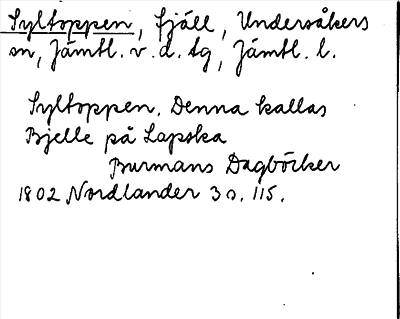 Syltoppen, fjäll, Undersåkers
sn, Jämtl. v. d. tg, Jämtl. l.
Syltoppen. Denna kallas
Bjelle på Lapska
Burmans Dagböcker
1802 Nordlander 3 s. 115.